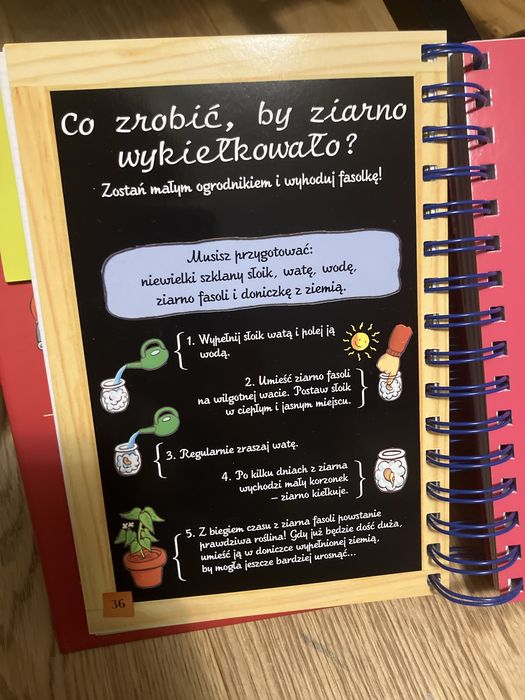 Co zrobić, by ziarno
wykiełkowało?
Zostań małym ogrodnikiem i wyhoduj fasolkę!
Musisz przygotować:
niewielki szklany słoik, watę, wodę,
ziarno fasoli i doniczkę z ziemią.
1. Wypełnij słoik watą i polej ją
wodą.
2. Umieść ziarno fasoli
na wilgotnej wacie. Postaw słoik
w ciepłym i jasnym miejscu.
3. Regularnie zraszaj watę.
4. Po kilku dniach z ziarna
wychodzi mały korzonek
– ziarno kiełkuje.
5. Z biegiem czasu z ziarna fasoli powstanie
prawdziwa roślina! Gdy już będzie dość duża,
umieść ją w doniczce wypełnionej ziemią,
by mogła jeszcze bardziej urosnąć...
36